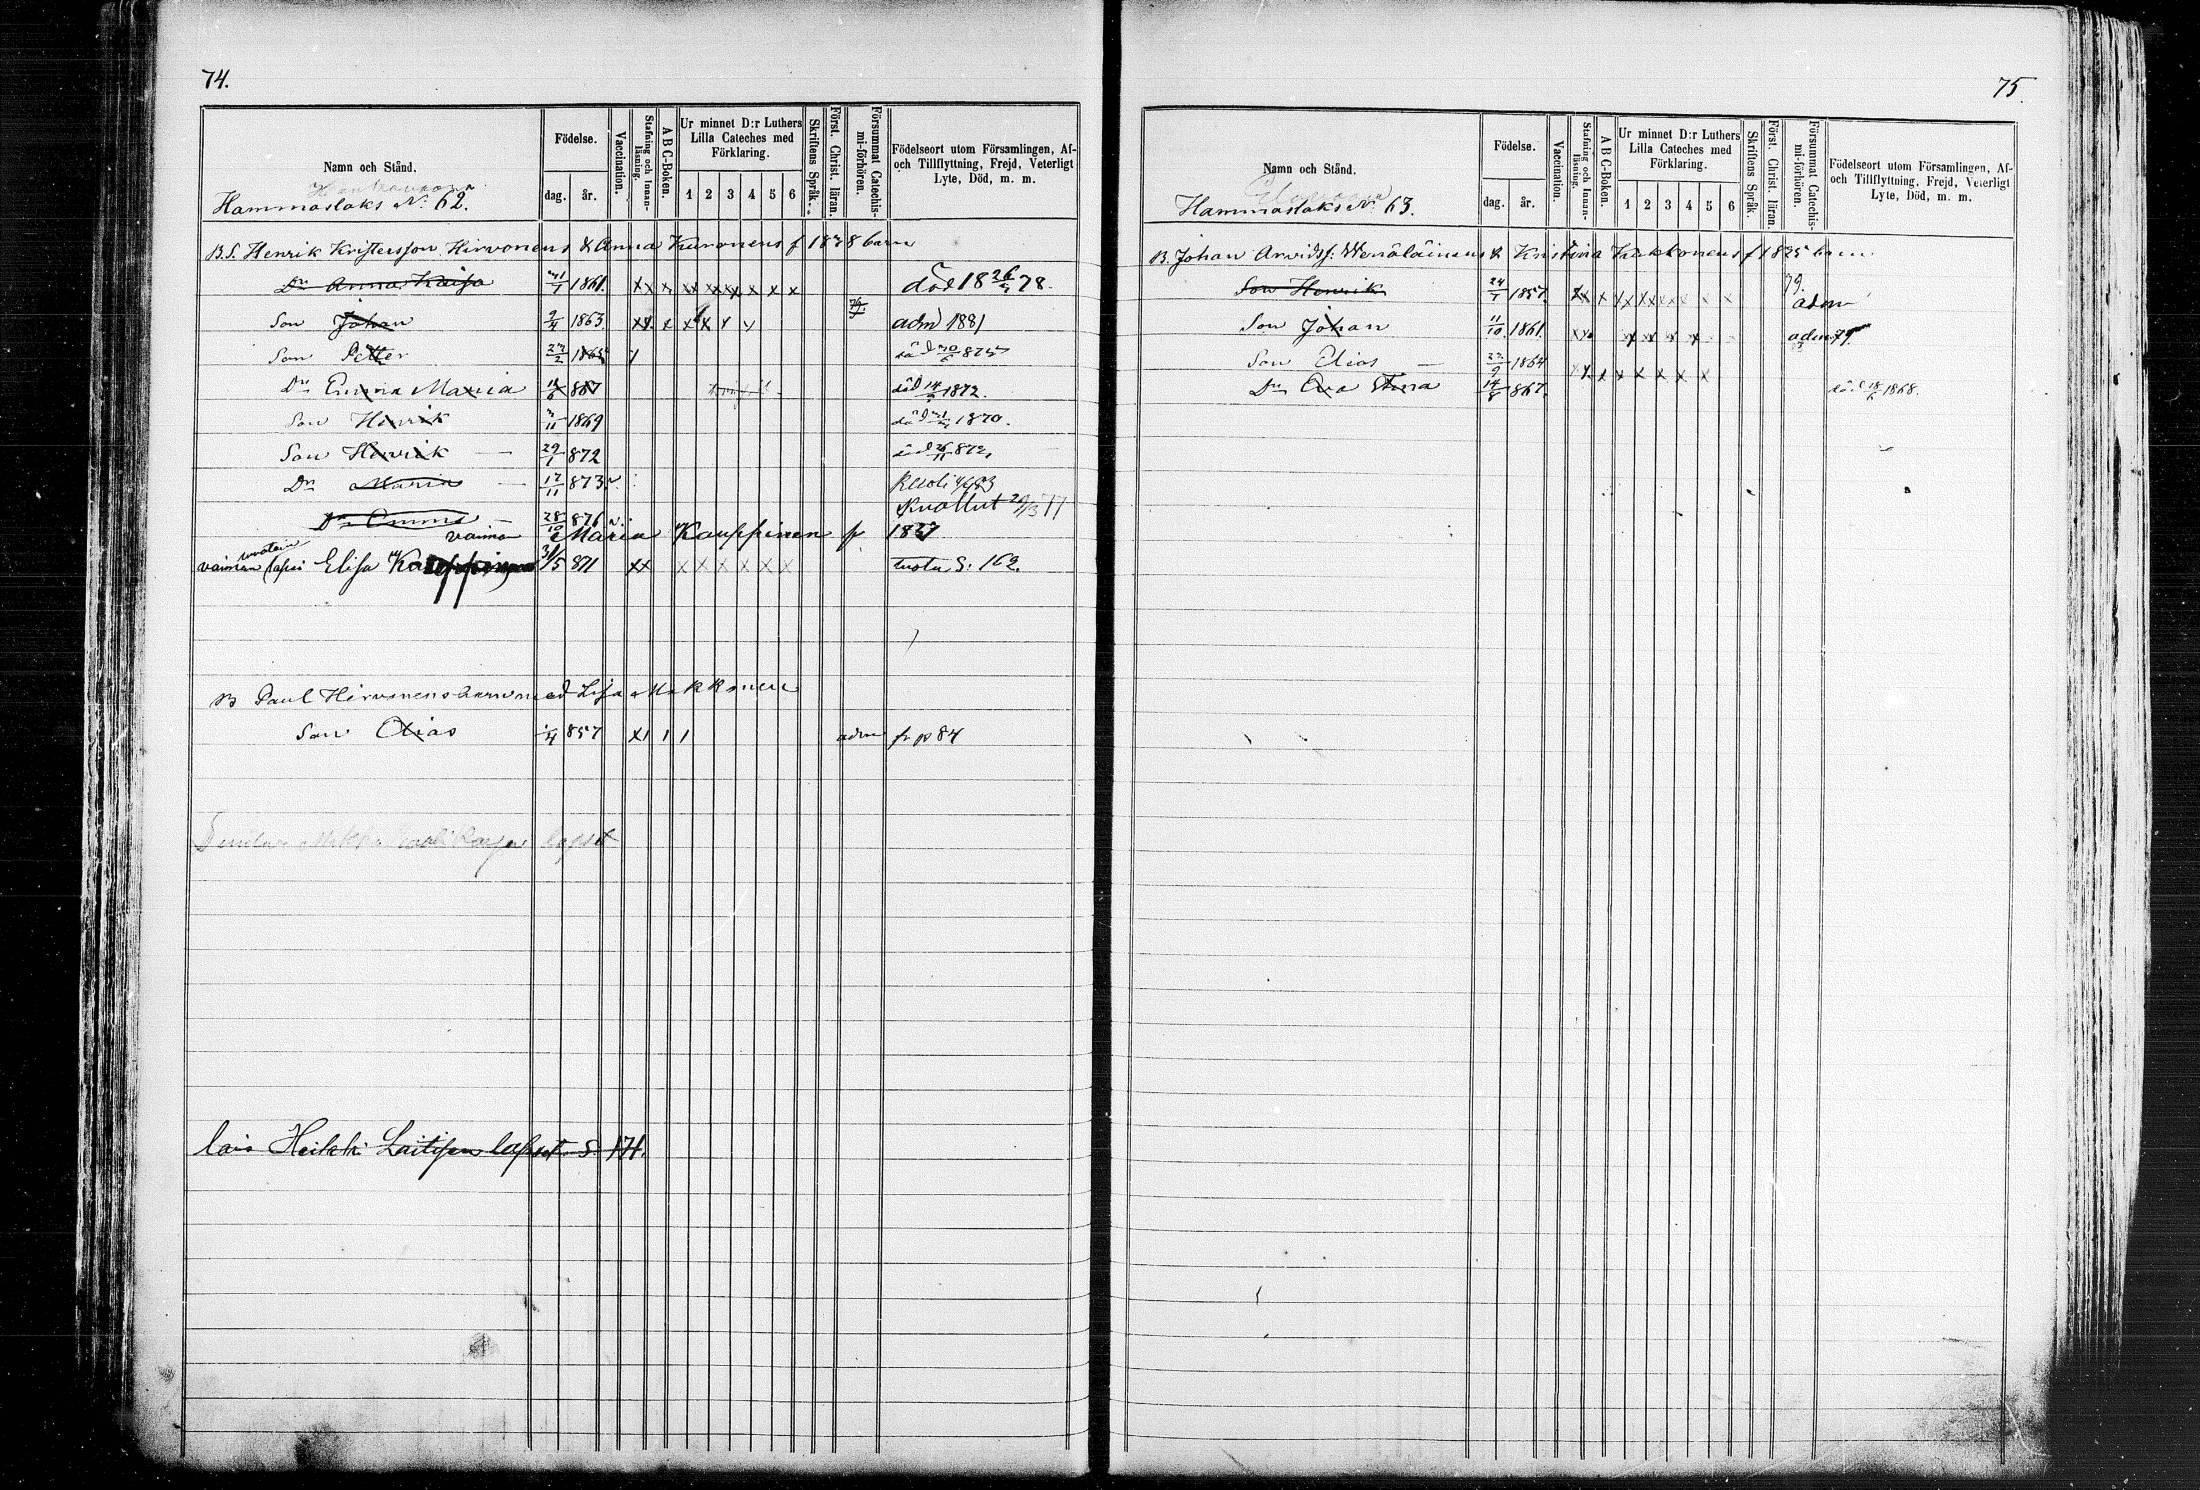 74.
Namn och Stånd.
Hammaslaks No 62.
Födelse.
dag.
år.
Vaccination.
Stafning och Innanläsning.
A B C-Boken.
Ur minnet D:r Luthers Lilla Cateches med Förklaring.
1 2 3 4 5 6
Skriftens Språk.
Först. Christ. läran.
Försummat Catechismi-förhören.
Födelseort utom Församlingen, Af- och Tillflyttning, Frejd, Veterligt Lyte, Död, m. m.
B.S. Henrik Kristersson Hirvonens & Anna Kuronens f 1838 barn
Dr Anna Kaisa 31/1 1861. x x x x x x x x x x död 18 26/4 78.
Son Johan 2/4 1863. xx x x x x x adm 1881
Son Petter 23/2 1865 död 30/6 875
Dr Emma Maria 18/6 867 död 14/2 1872.
Son Henrik 3/11 1869 död 1870.
Son Henrik — 29/1 872 död 26/11 872,
Dr Maria — 17/11 873. v. kuoli 4/6 83
Dr Emma — 28/10 876 v. kuollut 20/3 77
vaimo Maria Kauppinen f. 1837
vaiman lapsi Elisa Kauppinen 31/5 871 xx x x x x x x tuotu S. 162.
B Paul Hirvonens barn med Lisa Makkonen
Son Elias 1/4 857 x1 1 1 adm fr p 84
lapset
lois Heikki Laitisen lapset S. 171.
75.
Namn och Stånd.
Hammaslaks No 63.
Födelse.
dag.
år.
Vaccination.
Stafning och Innanläsning.
A B C-Boken.
Ur minnet D:r Luthers Lilla Cateches med Förklaring.
1 2 3 4 5 6
Skriftens Språk.
Först. Christ. läran.
Försummat Catechismi-förhören.
Födelseort utom Församlingen, Af- och Tillflyttning, Frejd, Veterligt Lyte, Död, m. m.
B. Johan Arvidss: Wenäläinens & Kristina Kakkonens f 1825 barn
Son Henrik 24/1 1857. xx x x x x x x x x 79. adm
Son Johan 11/10 1861. xx x x x x adm 79.
Son Elias — 22/9 1864 x x x x x x x
Dr Eva Stina 14/8 867. död 18/6 1868.